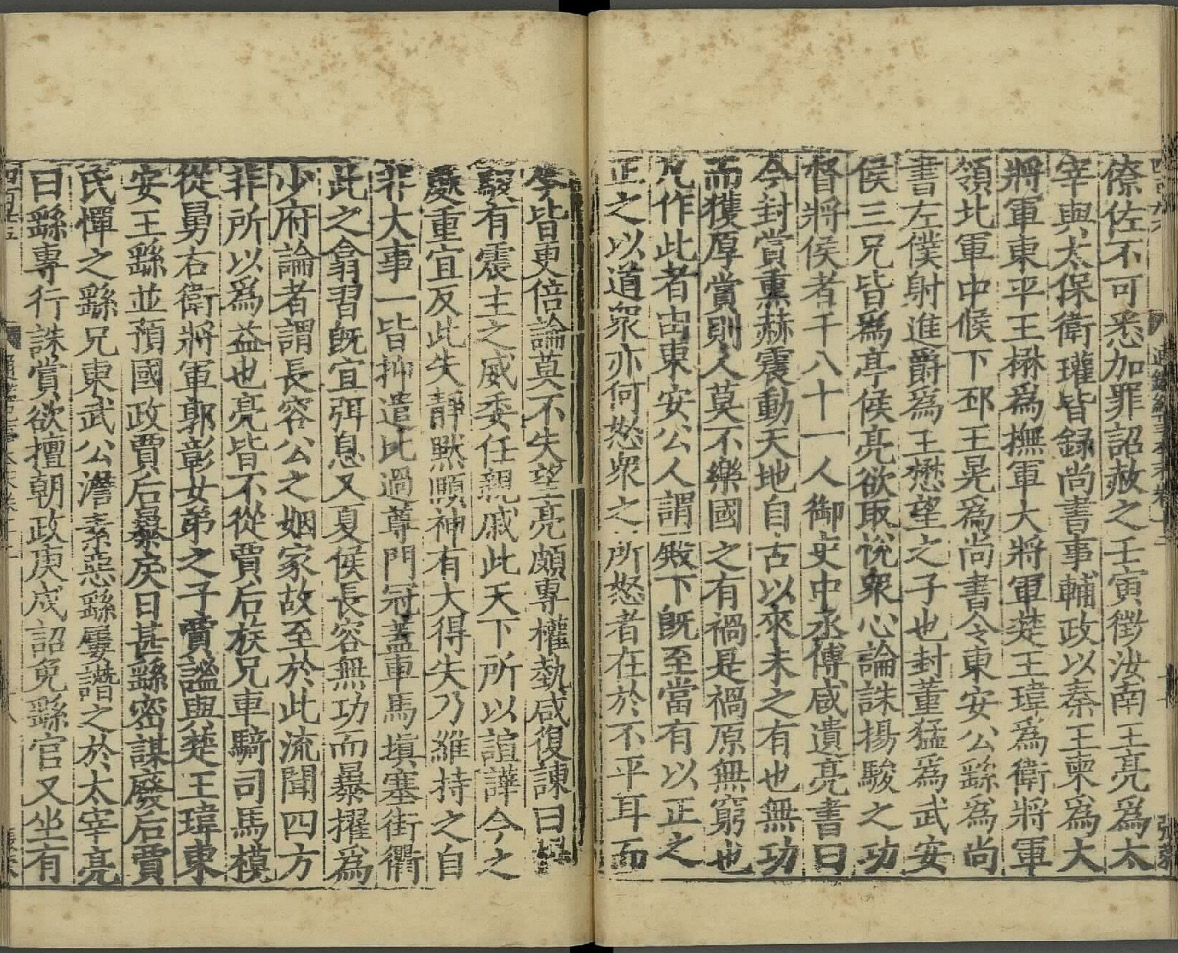 僚佐不可悉加罪詔赦之壬寅徵汝南王亮爲太
宰與太保衛瓘皆録尚書事輔政以秦王柬爲大
將軍東平王楙爲撫軍大將軍楚王瑋爲衛將軍
領北軍中候下邳王晃爲尚書令東安公繇爲尚
書左僕射進爵爲王懋望之子也封董猛爲武安
侯三兄皆爲亭侯亮欲取悅衆心論誅揚駿之功
督將侯者千八十一人御史中丞傅咸遺亮書曰
今封賞熏赫震動天地自古以來未之有也無功
而獲厚賞則人莫不樂國之有禍是禍原無窮也
凡作此者由東安公人謂殿下既至當有以正之
正之以道衆亦何怒衆之所怒者在於不平耳而
今皆更倍論莫不失望亮頗專權埶咸復諫曰楊
駿有震主之威委任親戚此天下所以諠譁今之
處重宜反此失靜黙頤神有大得失乃維持之自
非大事一皆抑遣比過尊門冠蓋車馬塡塞街衢
此之翕習既宜弭息又夏侯長容無功而暴擢爲
少府論者謂長容公之姻家故至於此流聞四方
非所以爲益也亮皆不從賈后族兄車騎司馬模
從舅右衛將軍郭彰女弟之子賈謐與楚王瑋東
安王繇並預國政賈后暴戾日甚繇密謀廢后賈
氏憚之繇兄東武公澹素惡繇屢譖之於太宰亮
曰繇專行誅賞欲擅朝政庚戌詔免繇官又坐有